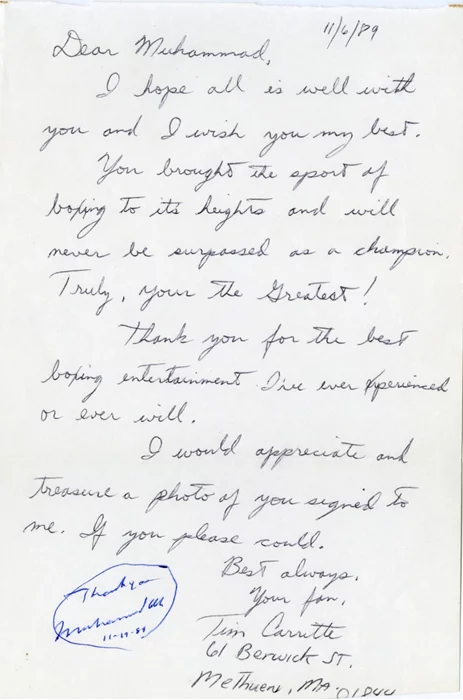 11/6/89
Dear Muhammad,
I hope all is well with
you and I wish you my best.
You brought the sport of
boxing to its heights and will
never be surpassed as a champion.
Truly, your the Greatest!
Thank you for the best
boxing entertainment I've ever experienced
or ever will.
I would appreciate and
treasure a photo of you signed to
me. If you please could.
Best always,
Your fan,
Tim
61 Berwick St.
Methuen, MA 01844
Thank you
Muhammad Ali
11-19-89